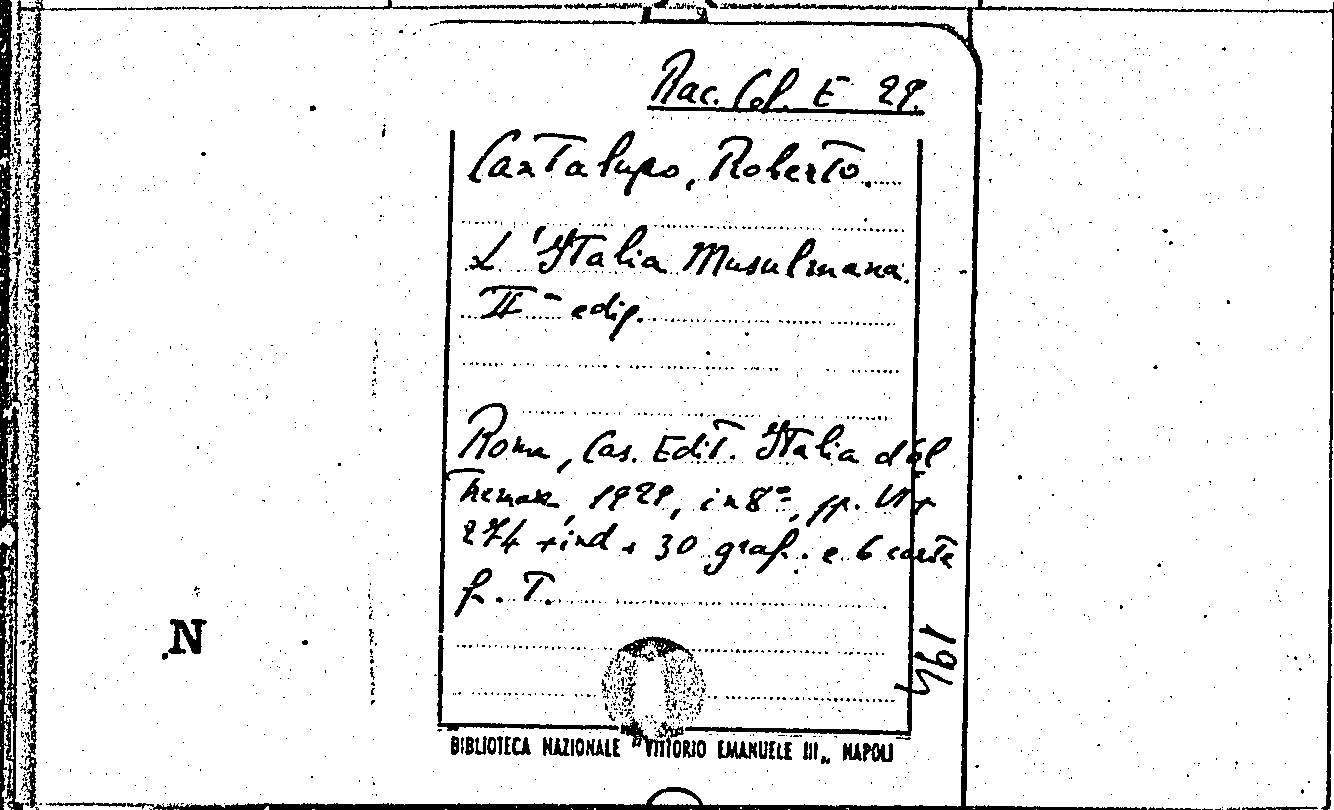 Rac. Col. E 29.
Cantalupo, Roberto.
L'Italia Musulmana.
IIª ediz.
Roma, Cas. Edit. Italia d'ol
tremare, 1929, in 8º, pp. VI +
274 + ind + 30 graf. e 6 carte
f. T.
N
BIBLIOTECA NAZIONALE "VITTORIO EMANUELE III„ NAPOLI